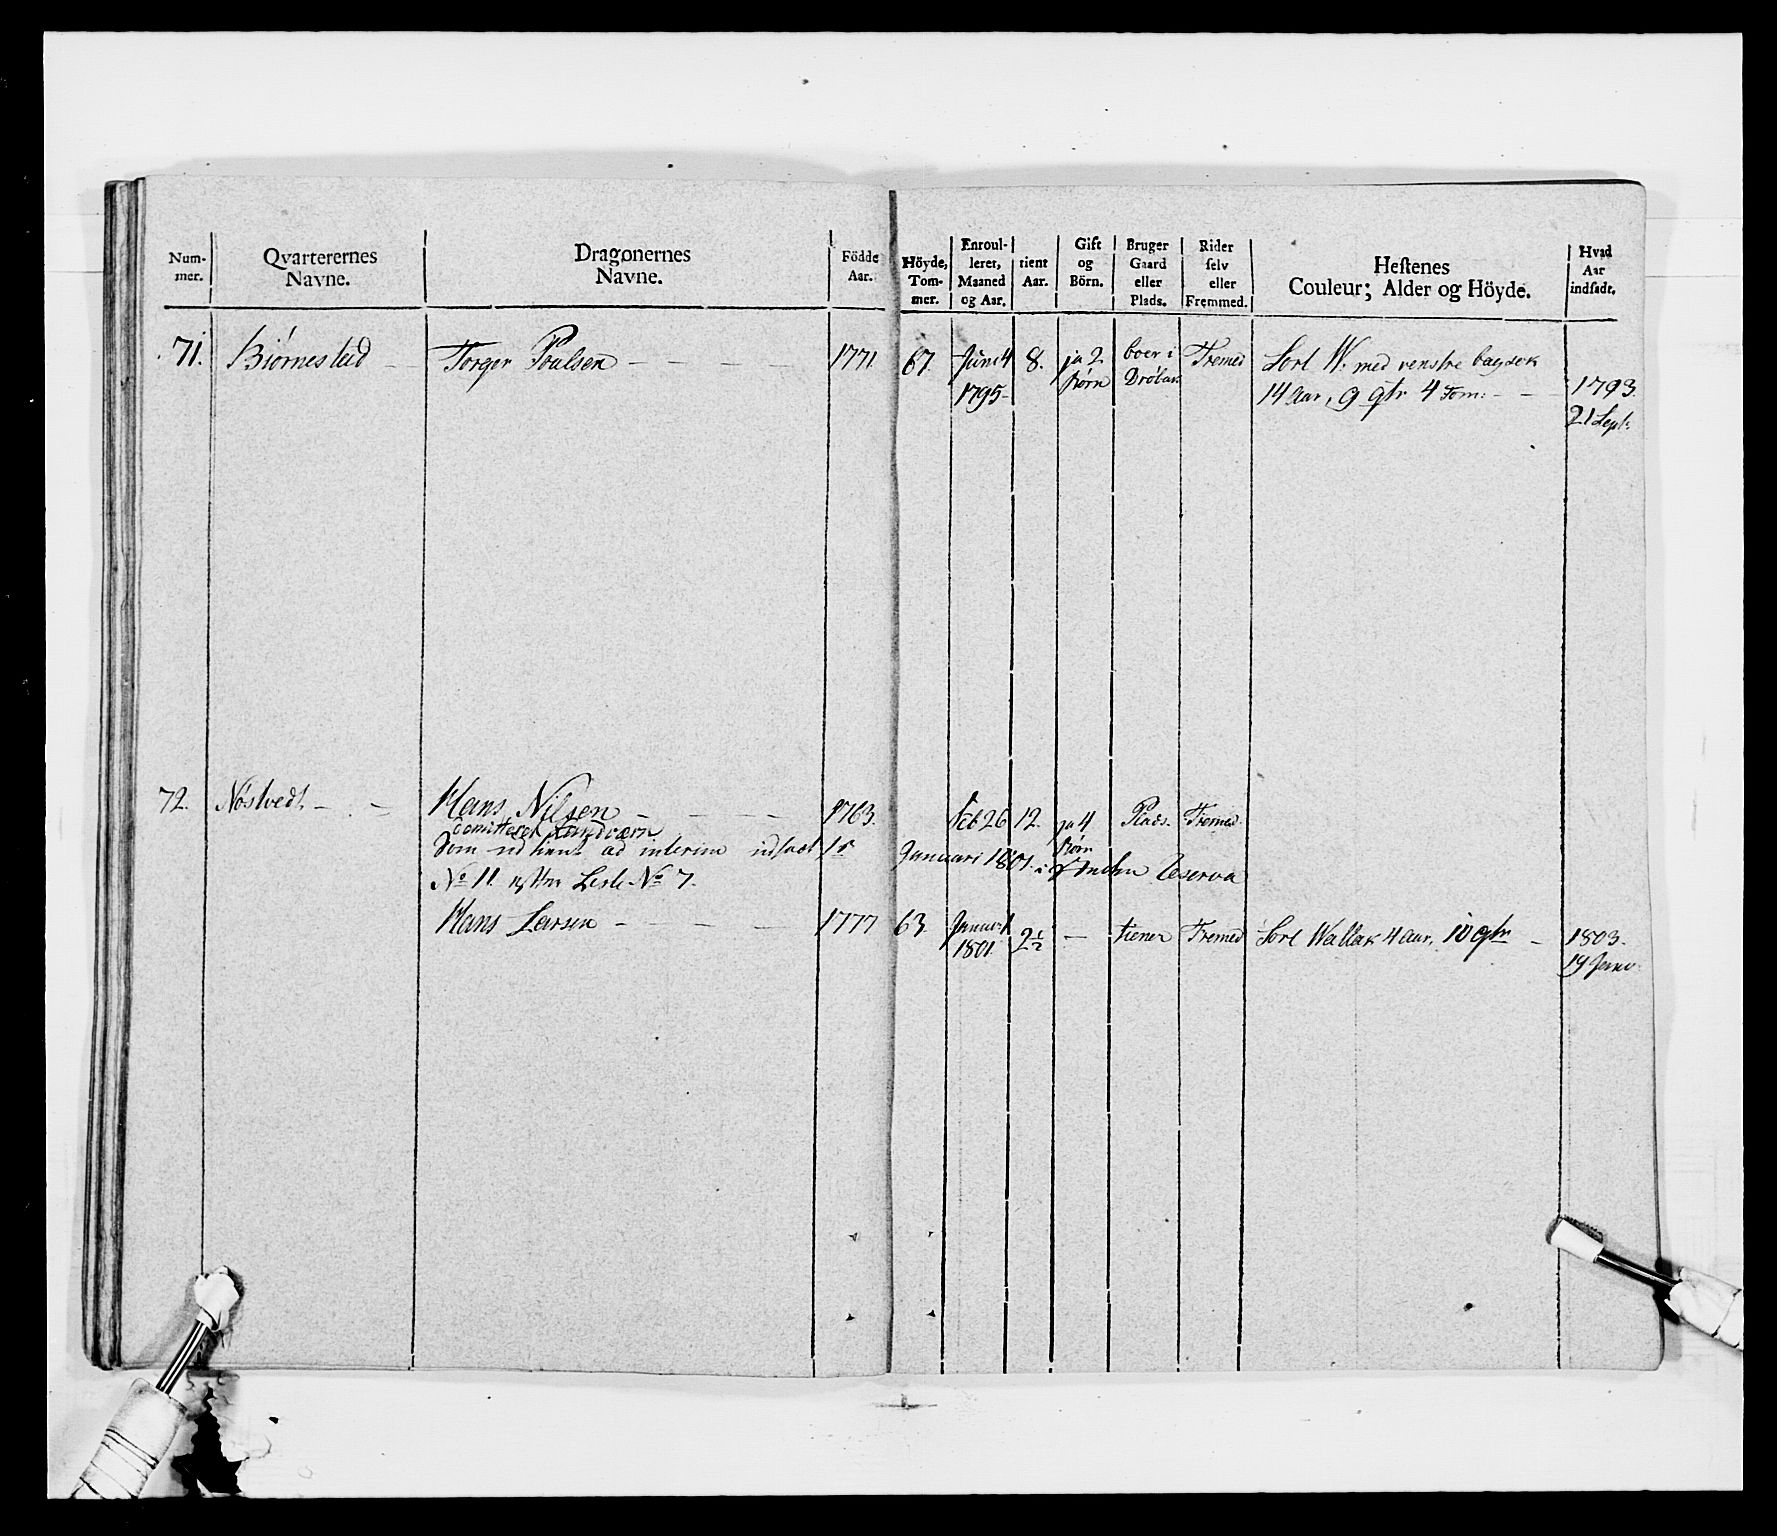 Num-
mer.
Qvarterernes
Navne.
Dragonernes
Navne.
Födde
Aar.
Höyde,
Tom-
mer.
Enroul-
leret,
Maaned
og Aar.
tient
Aar.
Gift
og
Börn.
Bruger
Gaard
eller
Plads.
Rider
selv
eller
Fremmed.
Hestenes
Couleur; Alder og Höyde.
Hvad
Aar
indsadt.
71. Biørnestad Torger Poulsen 1771 67. Juni 4 8. ja 2 boer i Fremed Sort W: med venstre bagsok
1795 børn Drøbak 14 Aar, 9 qtr 4 Tom: 1793.
21 Sept:
72. Nöstvedt Hans Nilsen 1763. Feb 26 12. ja 4 Plads. Fremed
Landværn børn
Som ad interim indsadt 1te Januari 1801. i Reserva
No 11 Liste No 7.
Hans Larsen 1777 63 Januar 1 2½ tiener Fremed Sort Wallak 4 Aar, 10 qtr 1803.
1801. 19 Janv: